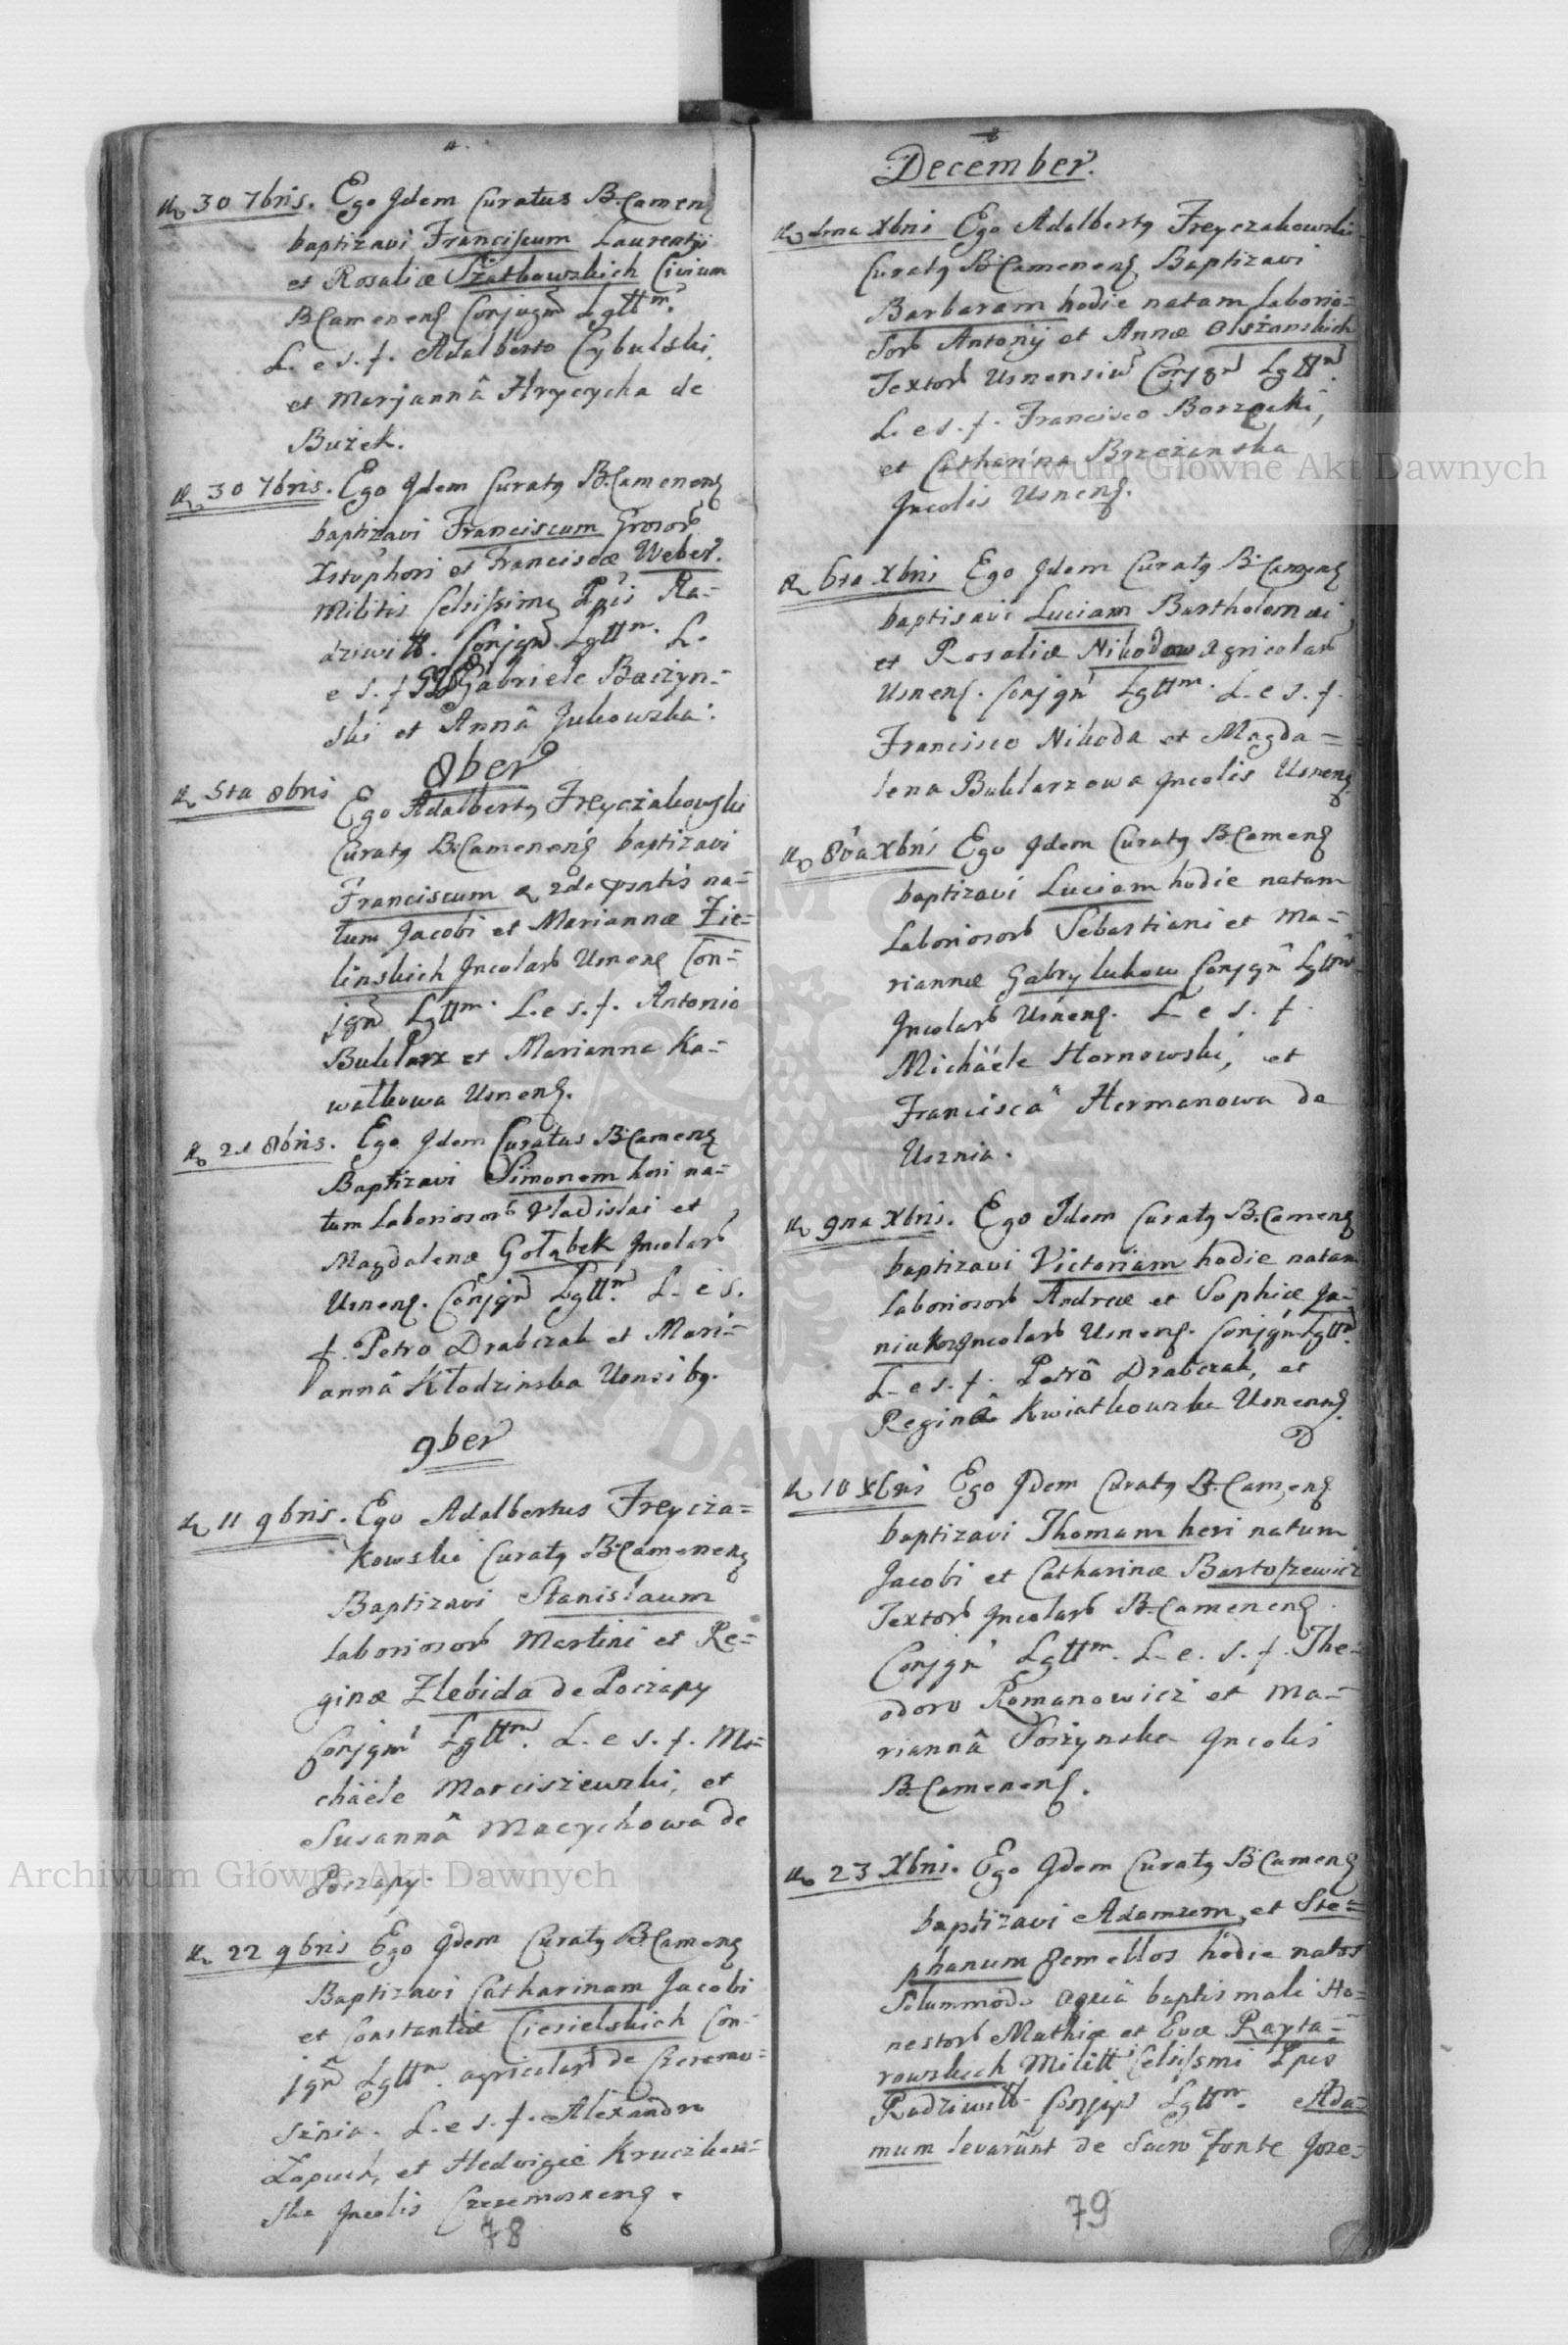 30 7bris. Ego Jdem Curatus B.Camen
baptizavi Franciscum Laurentii
et Rosaliæ Szatkowskich Civium
B.Camenens Conjugm Lgttm.
L. e s. f. Adalberto Cybulski
et Marjannâ Hrycycha de
Bużek.
30 7bris. Ego Jdem Curatq B.Camenens
baptizavi Franciscum
Xstophori et Franciscæ Weber.
Militis Celsissimi Ra-
dziwiłł. Conjgm Lgttm. L.
e s. f. Gabriele Baczyn-
ski et Annâ Jukowska.
8ber
5ta 8bris Ego Adalbertq Freyczakowski
Curatq B.Camenens baptizavi
Franciscum 2da na-
tum Jacobi et Mariannæ Zie-
linskich Jncolar Usnens Con-
jgm Lgttm. L. e s. f. Antonio
Buklarz et Marianna Ka-
wałkowa Usnens.
21 8bris. Ego Jdem Curatus B.Camens
Baptizavi Simonem heri na-
tum Laboriosor Vladislai et
Magdalenæ Gołąbek Jncolar
Usnens. Conjgm Lgttm. L. e s.
f. Petro Drabczak et Mari-
annâ Kłodzinska Usnsibq.
9ber
11 9bris. Ego Adalbertus Freycza-
kowski Curatq B.Camenens
Baptizavi Stanislaum
laboriosor Martini et Re-
ginæ Zlebida de Poczapy
Conjgm Lgttm. L. e s. f. Mi-
chäele Marciszewski, et
Susannâ Macychowa de
Poczapy.
22 9bris Ego Jdem Curatq B.Camens
Baptizavi Catharinam Jacobi
et Constantiæ Ciesielskich Con-
jgm Lgttm. agricolar de Czeremo-
sznia. L. e s. f. Alexandro
Łapuch, et Hedvigie Kruczkow-
ska Jncolis Czeremosznens.
78
December.
1ma Xbris Ego Adalbertq Freyczakowski
Curatq B.Camenens Baptizavi
Barbaram hodie natam Laborio-
sor Antonij et Annæ Olszanskich
Textor Usnensium Conjgm Lgttm
L. e s. f. Francisco Borzęcki,
et Catharina Brzezinska
Jncolis Usnens.
6ta Xbris Ego Jdem Curatq B.Camens
baptisavi Luciam Bartholomæi
et Rosaliæ Nikodow agricolar
Usnens. Conjgm Lgttm. L. e s. f.
Francisco Nikoda et Magda-
lena Buklarzowa Jncolis Usnens
8va Xbris Ego Jdem Curatq B.Camens
baptizavi Luciam hodie natam
Laboriosor Sebastiani et Ma-
riannæ Gabrylukow Conjgm Lgttm
Jncolar Usnens. L e s. f.
Michäele Hornowski, et
Franciscâ Hermanowa de
Usznia.
9na Xbris. Ego Jdem Curatq B.Camens
baptizavi Victoriam hodie natam
laboriosor Andreæ et Sophiæ Ja-
niukow Jncolar Usnens. Conjgm Lgttm.
L. e s. f. Petrô Drabczak, et
Reginâ Kwiatkowska Usnens.
10 Xbris Ego Jdem Curatq B.Camens
baptizavi Thomam heri natum
Jacobi et Catharinæ Bartoszewicz
Textor Jncolar B.Camenens
Conjgm Lgttm. L. e. s. f. The-
odoro Romanowicz et Ma-
riannâ Soszynska Jncolis
B.Camenens.
23 Xbris. Ego Jdem Curatq B.Camens
baptizavi Adamum, et Ste-
phanum gemellos hodie natos
Solummodo aquâ baptismali Ho-
nestor Mathiæ et Evæ Rayta-
rowskich Milittm Celsissmi
Radziwiłł Conjgm Lgttm. Ada-
mum levarunt de Sacro fonte Jose-
79
Archiwum Główne Akt Dawnych
Archiwum Główne Akt Dawnych